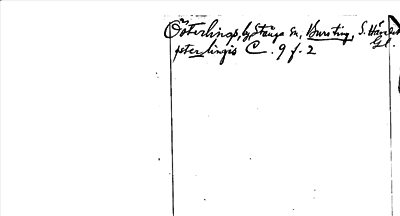 Österlings, by, Stånga sn, Burs ting, S. Häradet Gl.
peterlingis C. 9 f. 2